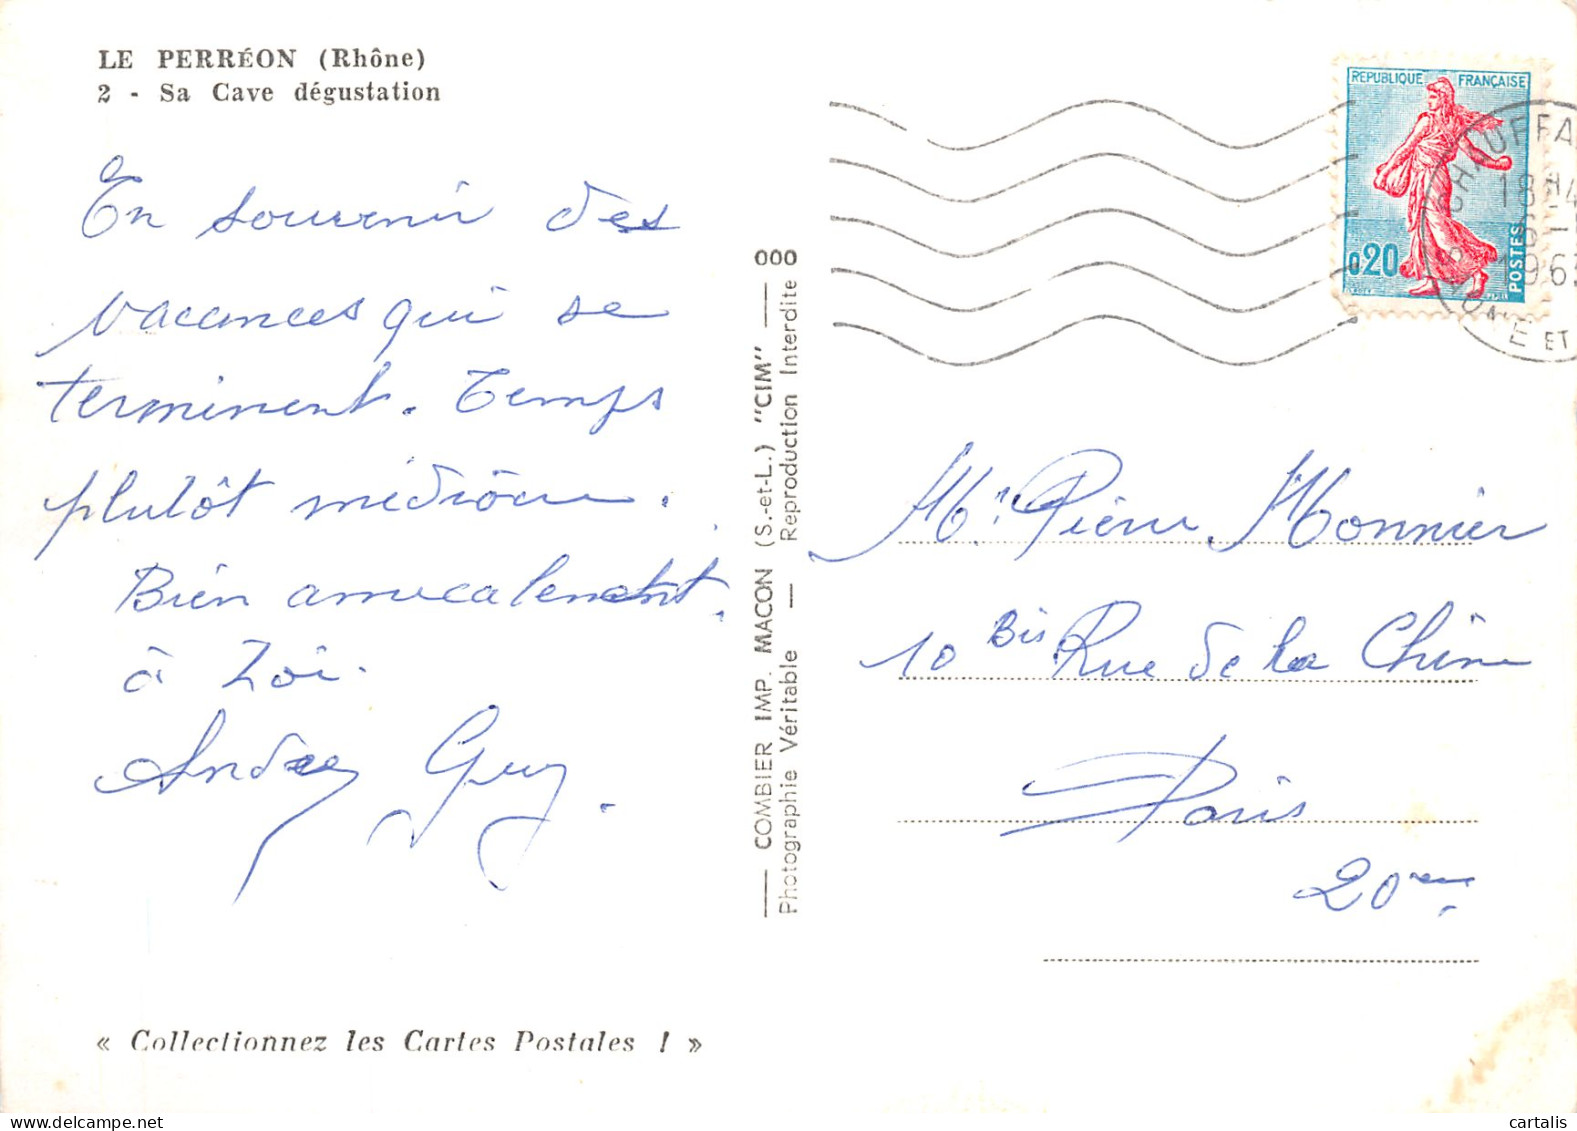 LE PERRÉON (Rhône)
2 - Sa Cave dégustation
En souvenir des
vacances qui se
terminent. Temps
plutôt médiocre.
Bien amicalement
à Zoi.
Andrée Guy.
« Collectionnez les Cartes Postales ! »
COMBIER IMP. MACON (S.-et-L.) "CIM" 000
Photographie Véritable — Reproduction Interdite
REPUBLIQUE FRANÇAISE
0,20
POSTES
CHAUFFA
18H4
6-
196
SAONE ET
Mr. Pierre Monnier
10 Bis Rue de la Chine
Paris
20ème
cartalis